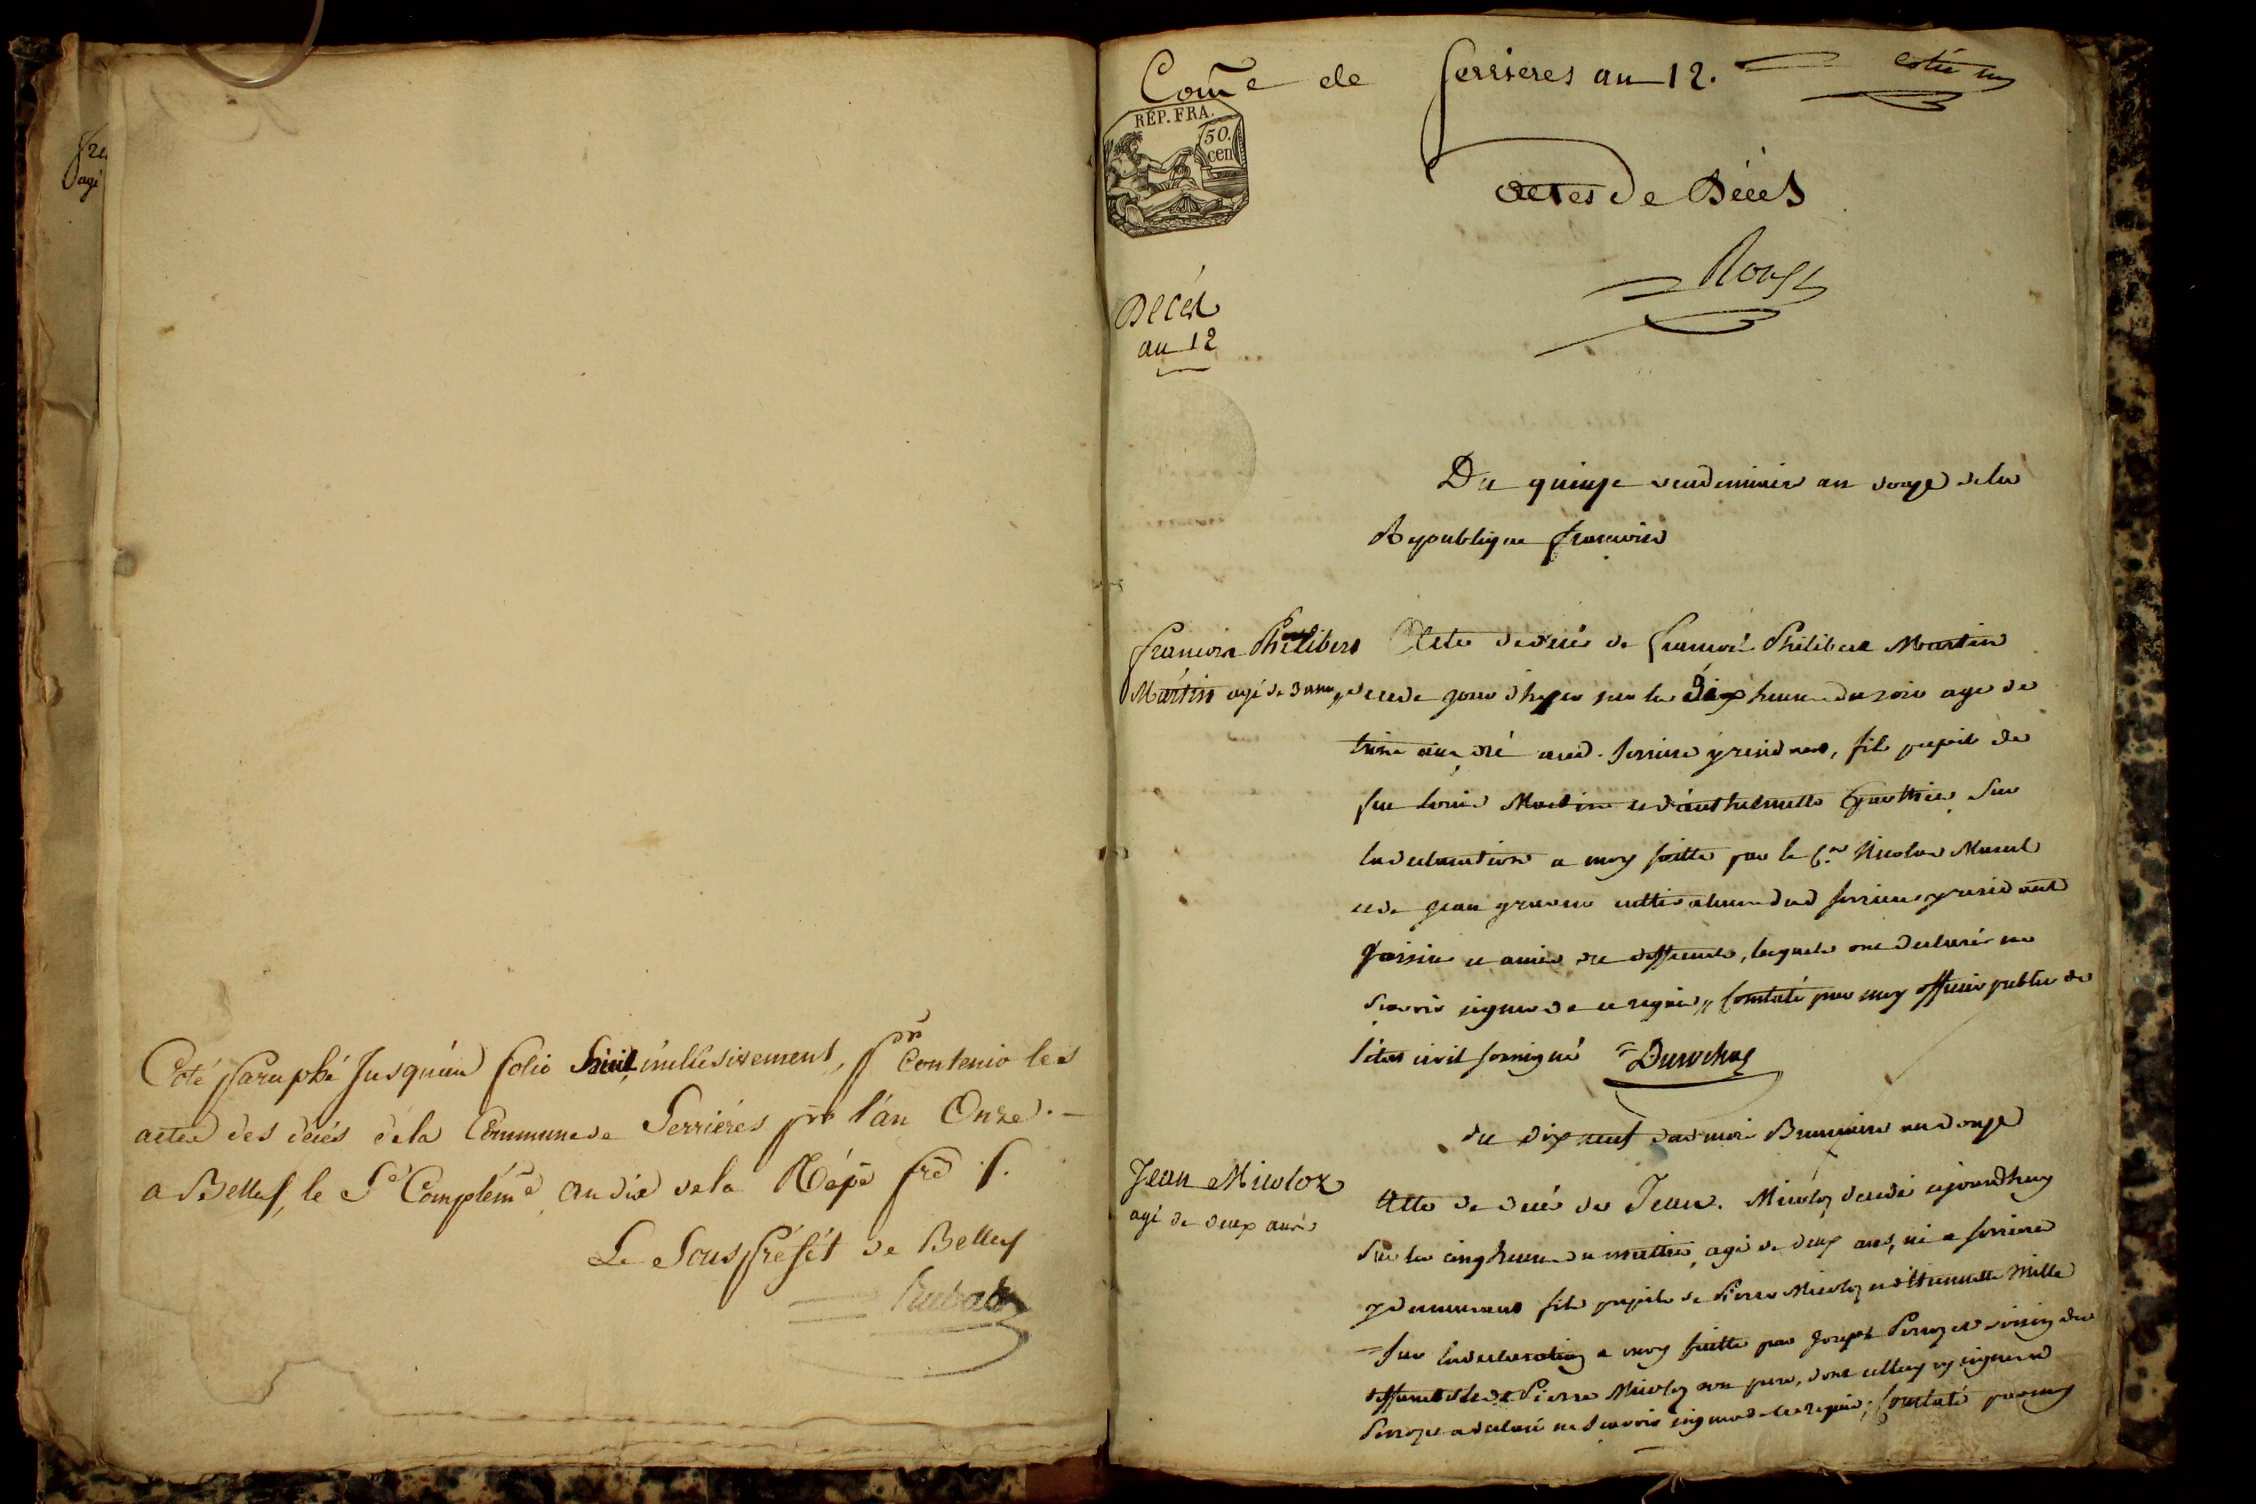 Coté paraphé Jusqu'au folio huit, inclusivement, pr Contenir les
actes des décés dela Commune de Serrières pr l'an Onze.
a Belley, le 5e Complémre an dix dela Répe fre
Le Sous préfét de Belley
agé
Come de Serrieres an 12.
REP. FRA.
50.
cen
actes de Décés
Roux
Décés
an 12
Du quinze vendemiaire an douze dela
Republique francoise
francois Philibert
Martin agé de 3 ans
Acte de décés de francois Philibert Martin
decede jour d'hyer sur les dix heures du soir age de
trois ans né aud. Serriere y residant, fils pupil de
feu Louis Martin et d'anthelmette Gauthier Sur
la declaration a moy faitte par le Cen Nicolas
et de jean cultivateurs dud Serrieres y residant
voisin et amis du deffunct, lesquels ont declaré ne
scavoir signer de ce requis, Constaté par moy officier public de
l'état civil soussigné Durochas
du dix neuf du mois Brumaire an douze
Jean Micoloz
agé de deux ans
Acte de decés de Jean Micoloz decedé ajourdhuy
Sur les cinq heures du mattin, agé de deux ans, né a serriere
y demeurant fils pupil de Pierre Micoloz et d'
Sur la declaration a moy faitte par joseph Perrozet voisin du
deffunct et de Pierre Micoloz son pere, dont
Perrozet a declaré ne Scavoir signer de ce requis, Constaté par moy